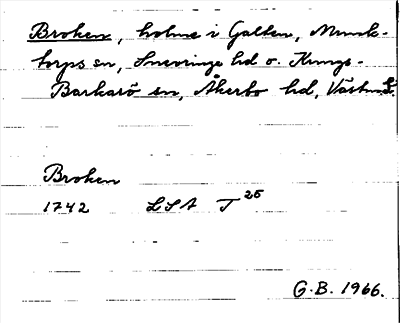 Broken, holme i Galten, Munk-
torps sn, Snevringe hd o. Kungs-
Barkarö sn, Åkerbo hd, Västm.l.
Broken
1742 LSA T 25
G.B. 1966.